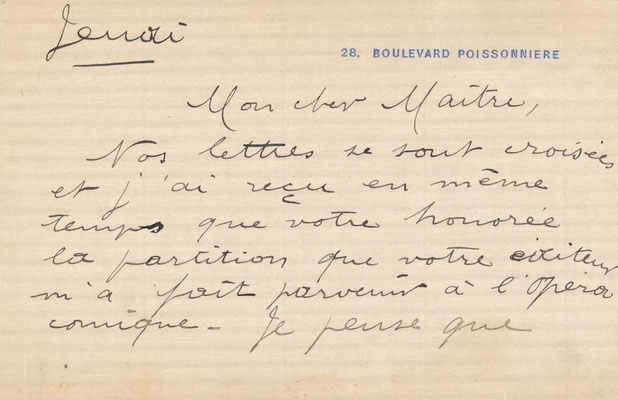 Jeudi
28, BOULEVARD POISSONNIERE
Mon cher Maître,
Nos lettres se sont croisées
et j'ai reçu en même
temps que votre honorée
la partition que votre éditeur
m'a fait parvenir à l'Opéra
comique - Je pense que